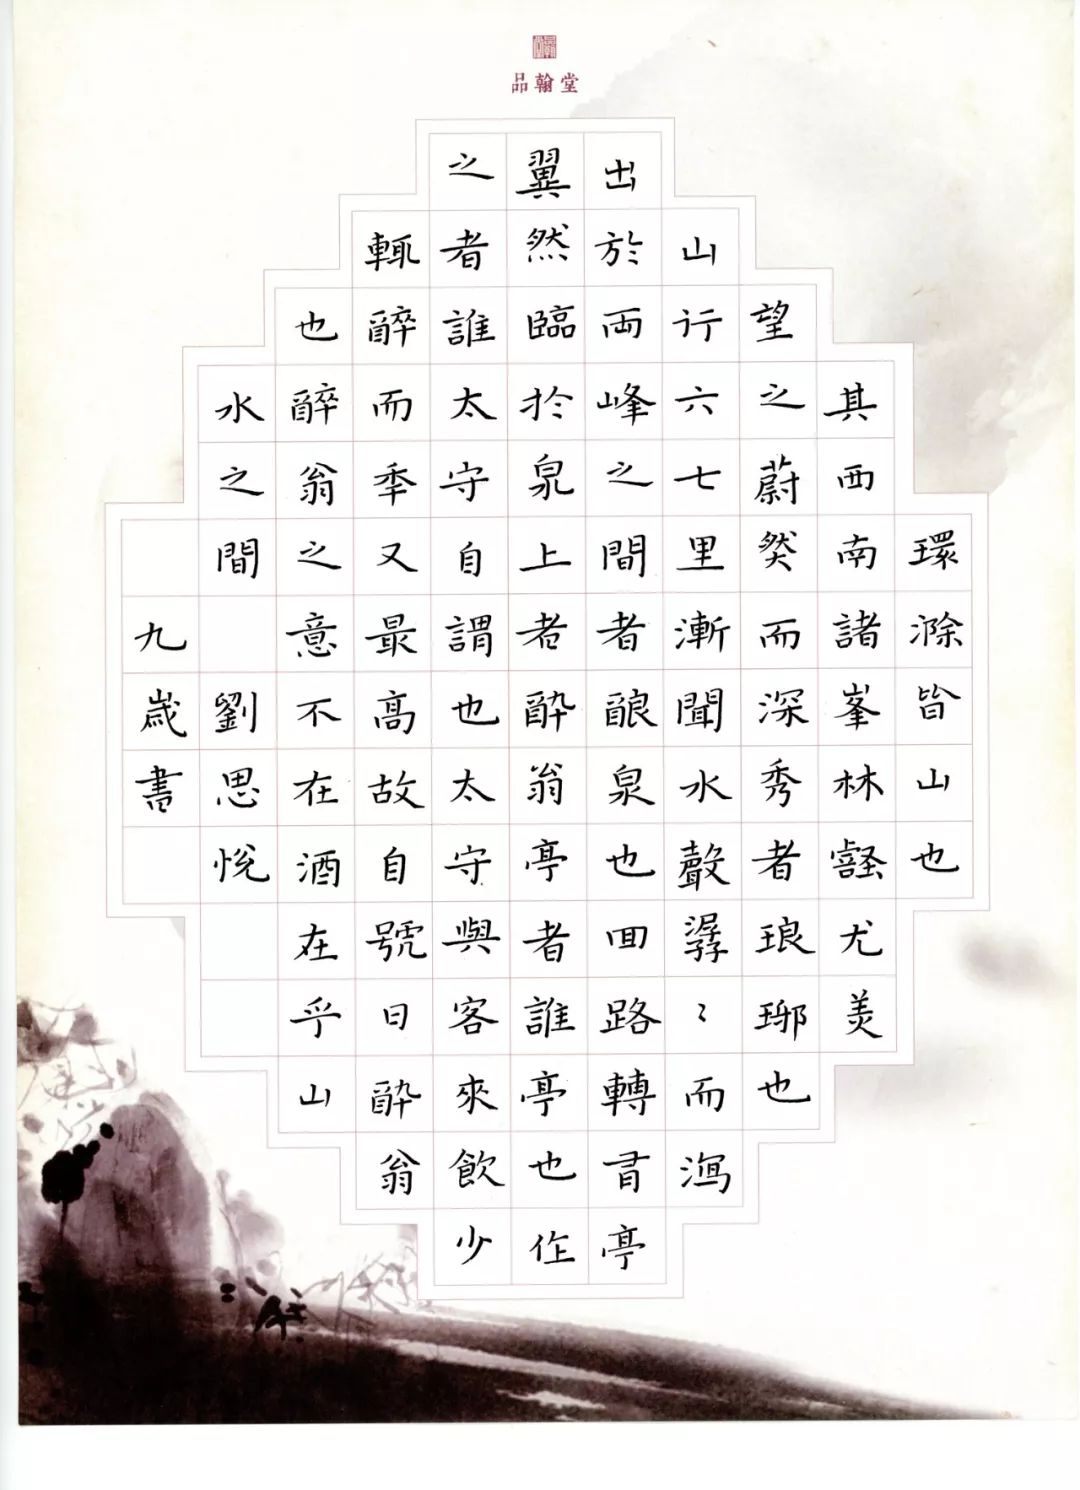 品翰堂
環滁皆山也
其西南諸峯林壑尤美
望之蔚然而深秀者琅琊也
山行六七里漸聞水聲潺〻而瀉
出於兩峰之間者釀泉也回路轉有亭
翼然臨於泉上者醉翁亭者誰亭也作
之者誰太守自謂也太守與客來飲少
輒醉而年又最高故自號曰醉翁
也醉翁之意不在酒在乎山
水之間 劉思悅
九歲書